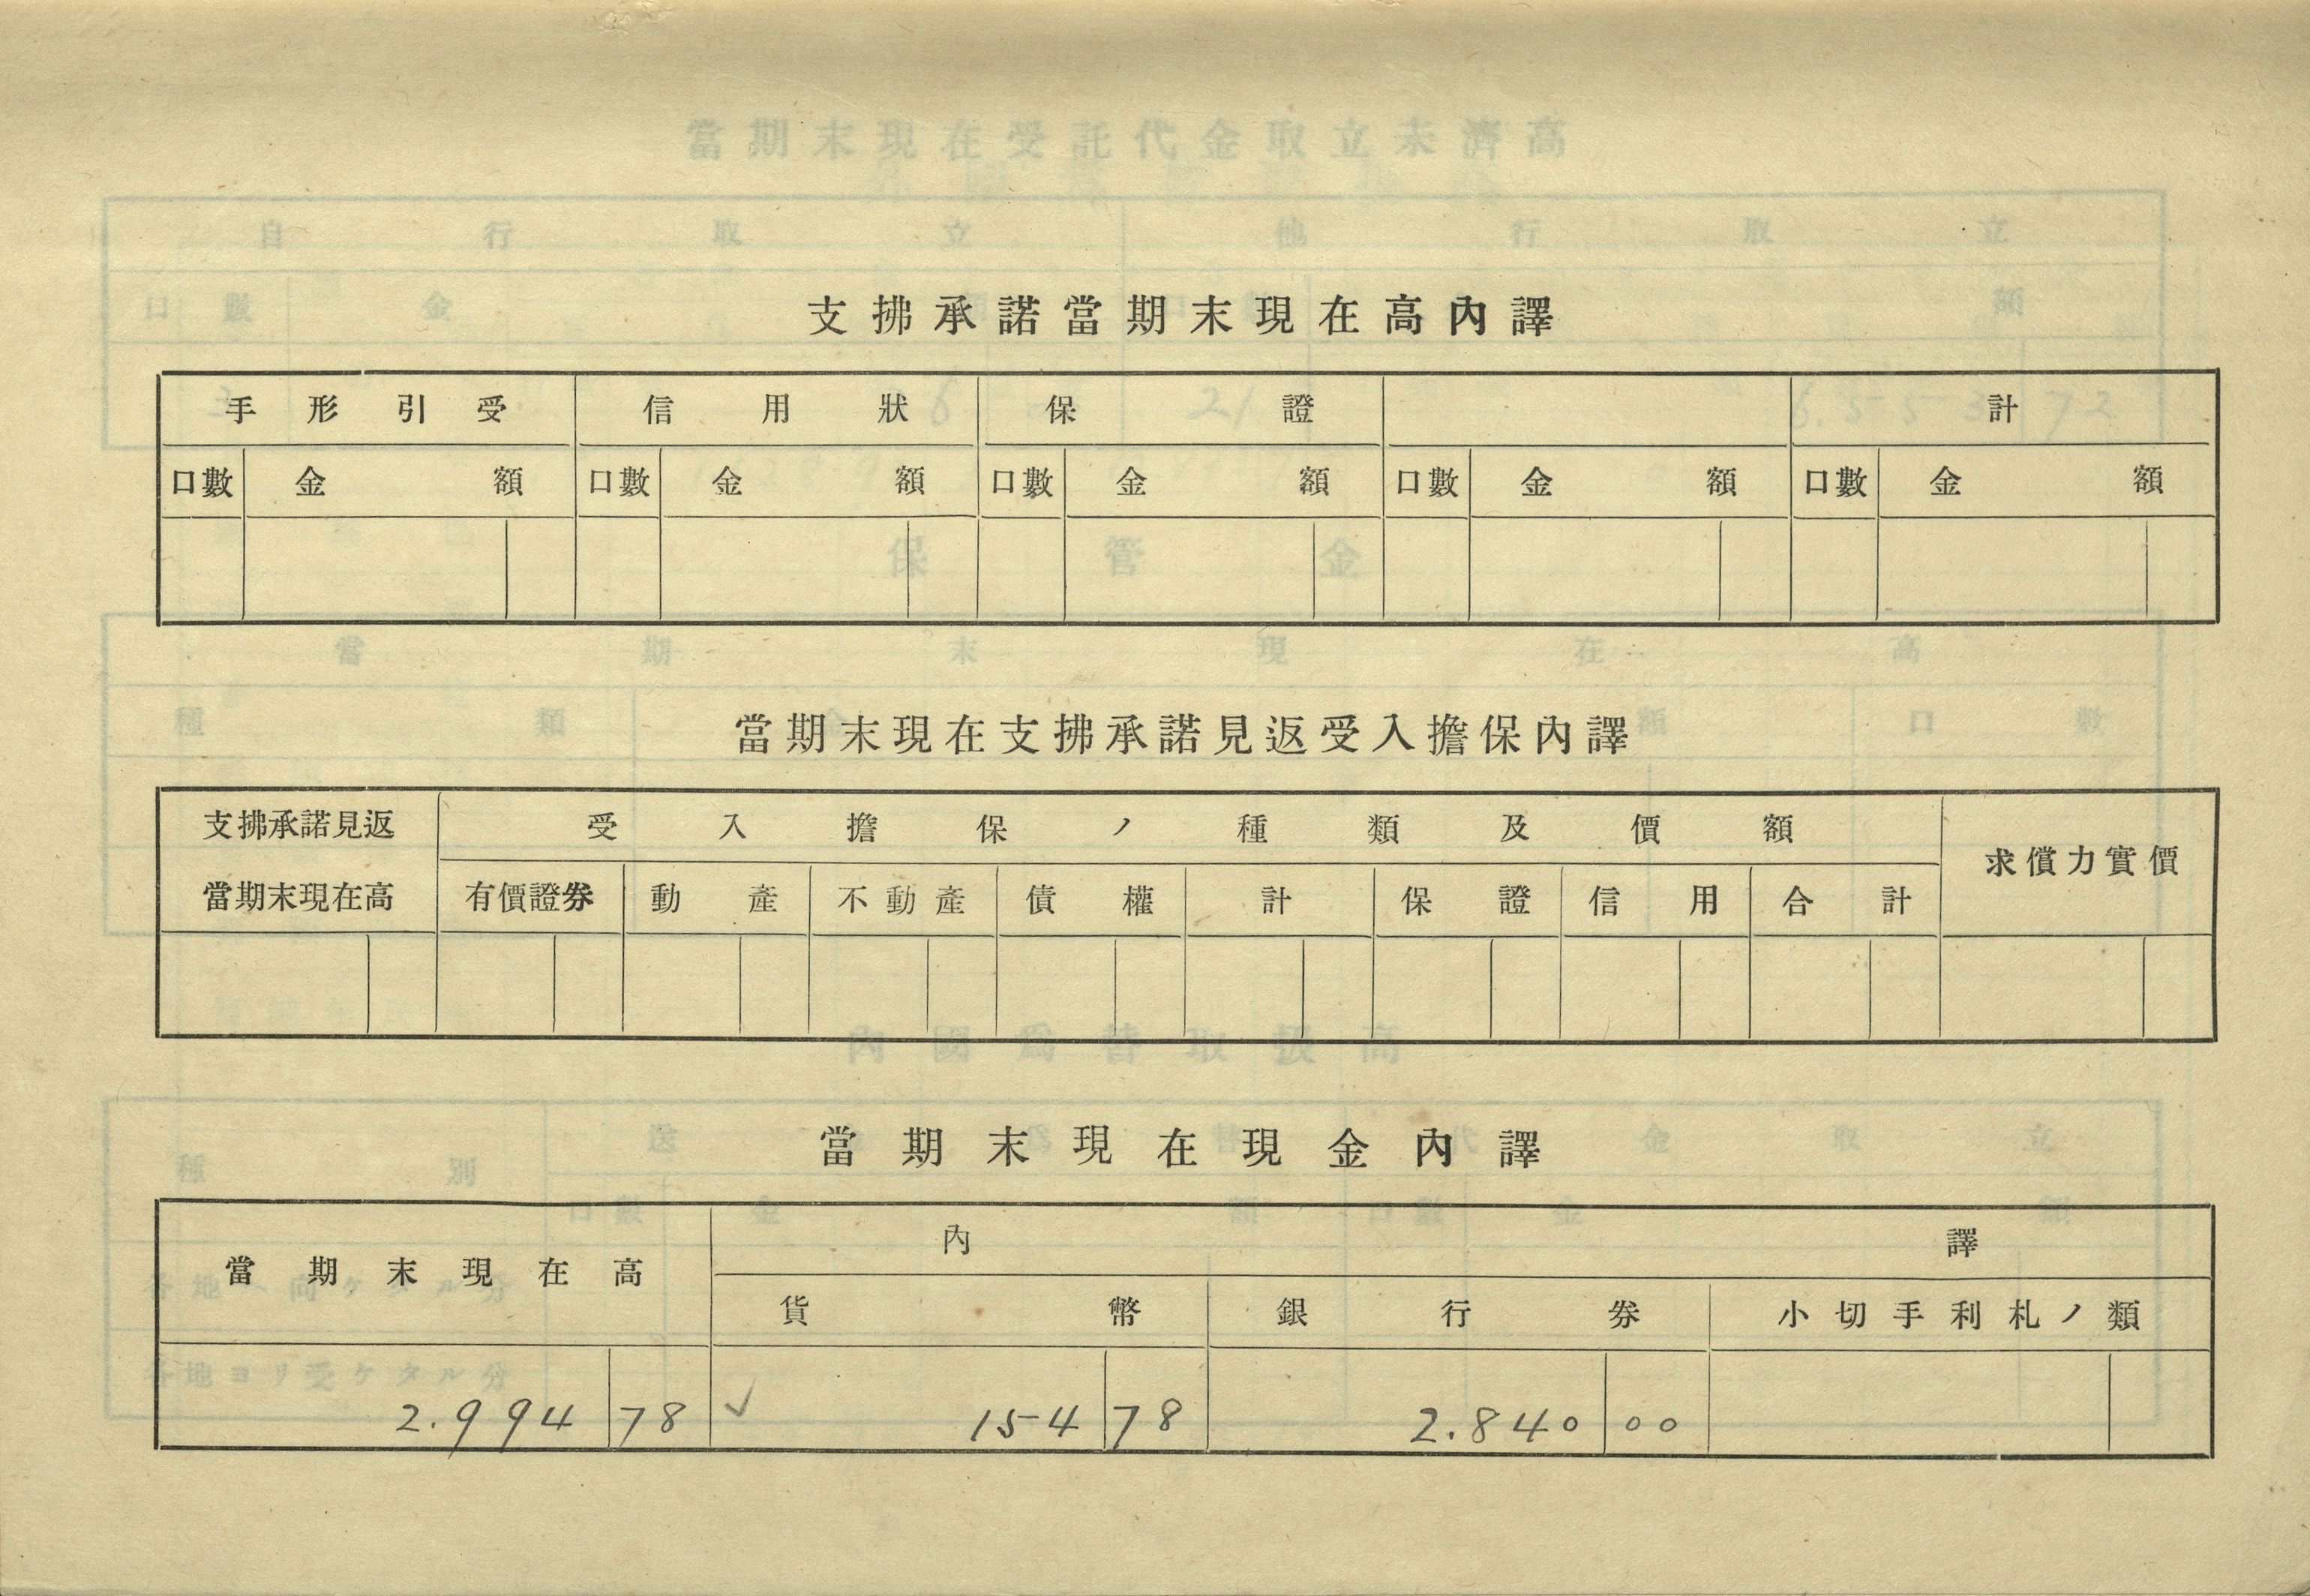 支拂承諾當期末現在高內譯
手形引受 信用狀 保證 計
口數 金額 口數 金額 口數 金額 口數 金額 口數 金額
當期末現在支拂承諾見返受入擔保內譯
支拂承諾見返 受入擔保ノ種類及價額
求償力實價
當期末現在高 有價證券 動產 不動產 債權 計 保證 信用 合計
當期末現在現金內譯
內譯
當期末現在高
貨幣 銀行券 小切手利札ノ類
2.994 78 ✓ 154 78 2.840 00